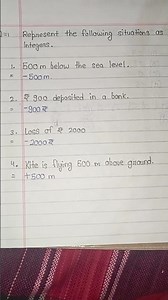 Q:-1 Represent the following situations as
Integers.
1. 500 m below the sea level.
= -500 m.
2. ₹ 900 deposited in a bank.
= -900 ₹
3. Loss of ₹ 2000
= -2000 ₹
4. Kite is flying 500 m above ground.
= +500 m